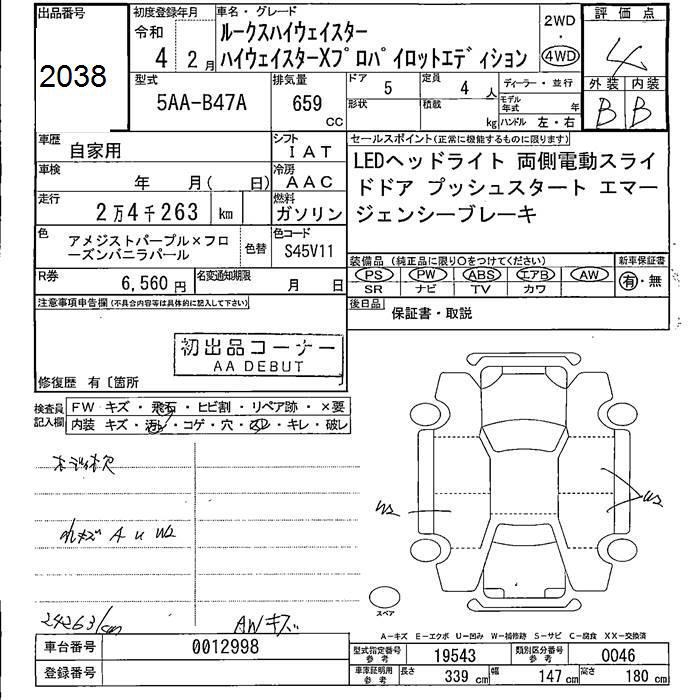 出品番号
2038
初度登録年月
令和
4 2月
車名・グレード
ルークスハイウェイスター
ハイウェイスターXプロパイロットエディション
2WD
・
4WD
評価点
4
外装 内装
B B
型式
5AA-B47A
排気量
659
CC
ドア 5
定員 4 人
形状
積載 kg
ディーラー・並行
モデル年式 年
ハンドル 左・右
車歴 自家用
シフト
IAT
車検 年 月( 日)
冷房
AAC
走行 2万4千263 km
燃料
ガソリン
色 アメジストパープル×フローズンバニラパール
色替
色コード
S45V11
R券 6,560円
名変通知期限 月 日
セールスポイント(正常に機能するものに限ります)
LEDヘッドライト 両側電動スライ
ドドア プッシュスタート エマー
ジェンシーブレーキ
装備品(純正品に限り○をつけてください)
新車保証書
PS PW ABS エアB AW
SR ナビ TV カワ
有・無
後日品
保証書・取説
注意事項申告欄(不具合内容等は具体的に記入して下さい)
初出品コーナー
AA DEBUT
修復歴 有〔箇所
検査員
記入欄
FW キズ・飛石・ヒビ割・リペア跡・×要
内装 キズ・汚れ・コゲ・穴・スレ・キレ・破レ
A U W2
24263/cm
AWキズ
W2
W2
スペア
A-キズ E-エクボ U-凹み W-補修跡 S-サビ C-腐食 XX-交換済
車台番号 0012998
登録番号
型式指定番号
参考
19543
類別区分番号
参考
0046
車庫証明用
参考
長さ 339 cm 幅 147 cm 高さ 180 cm